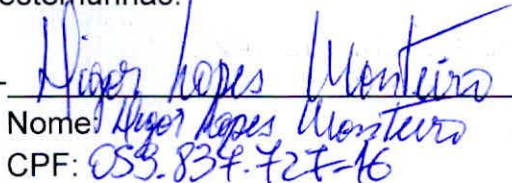 estemunhas:
- Higor Lopes Monteiro
Nome: Higor Lopes Monteiro
CPF: 059.837.727-16